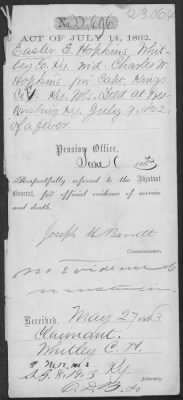 No. 22,696
ACT OF JULY 14, 1862.
Easter E. Hopkins, Whit-
ley Co. Ky. wid. Charles W
Hopkins, pri. Capt. Kings
Co. Ky. Vols. Died at
Ky. July 9, 1862
of fever.
Pension Office,
June 186
Respectfully referred to the Adjutant
General, for official evidence of service
and death.
Joseph H Barrett
Commissioner.
No Evidence of
Received, May 27 1863
Claimant.
Whitley C. H.
Ky.
Attorney.